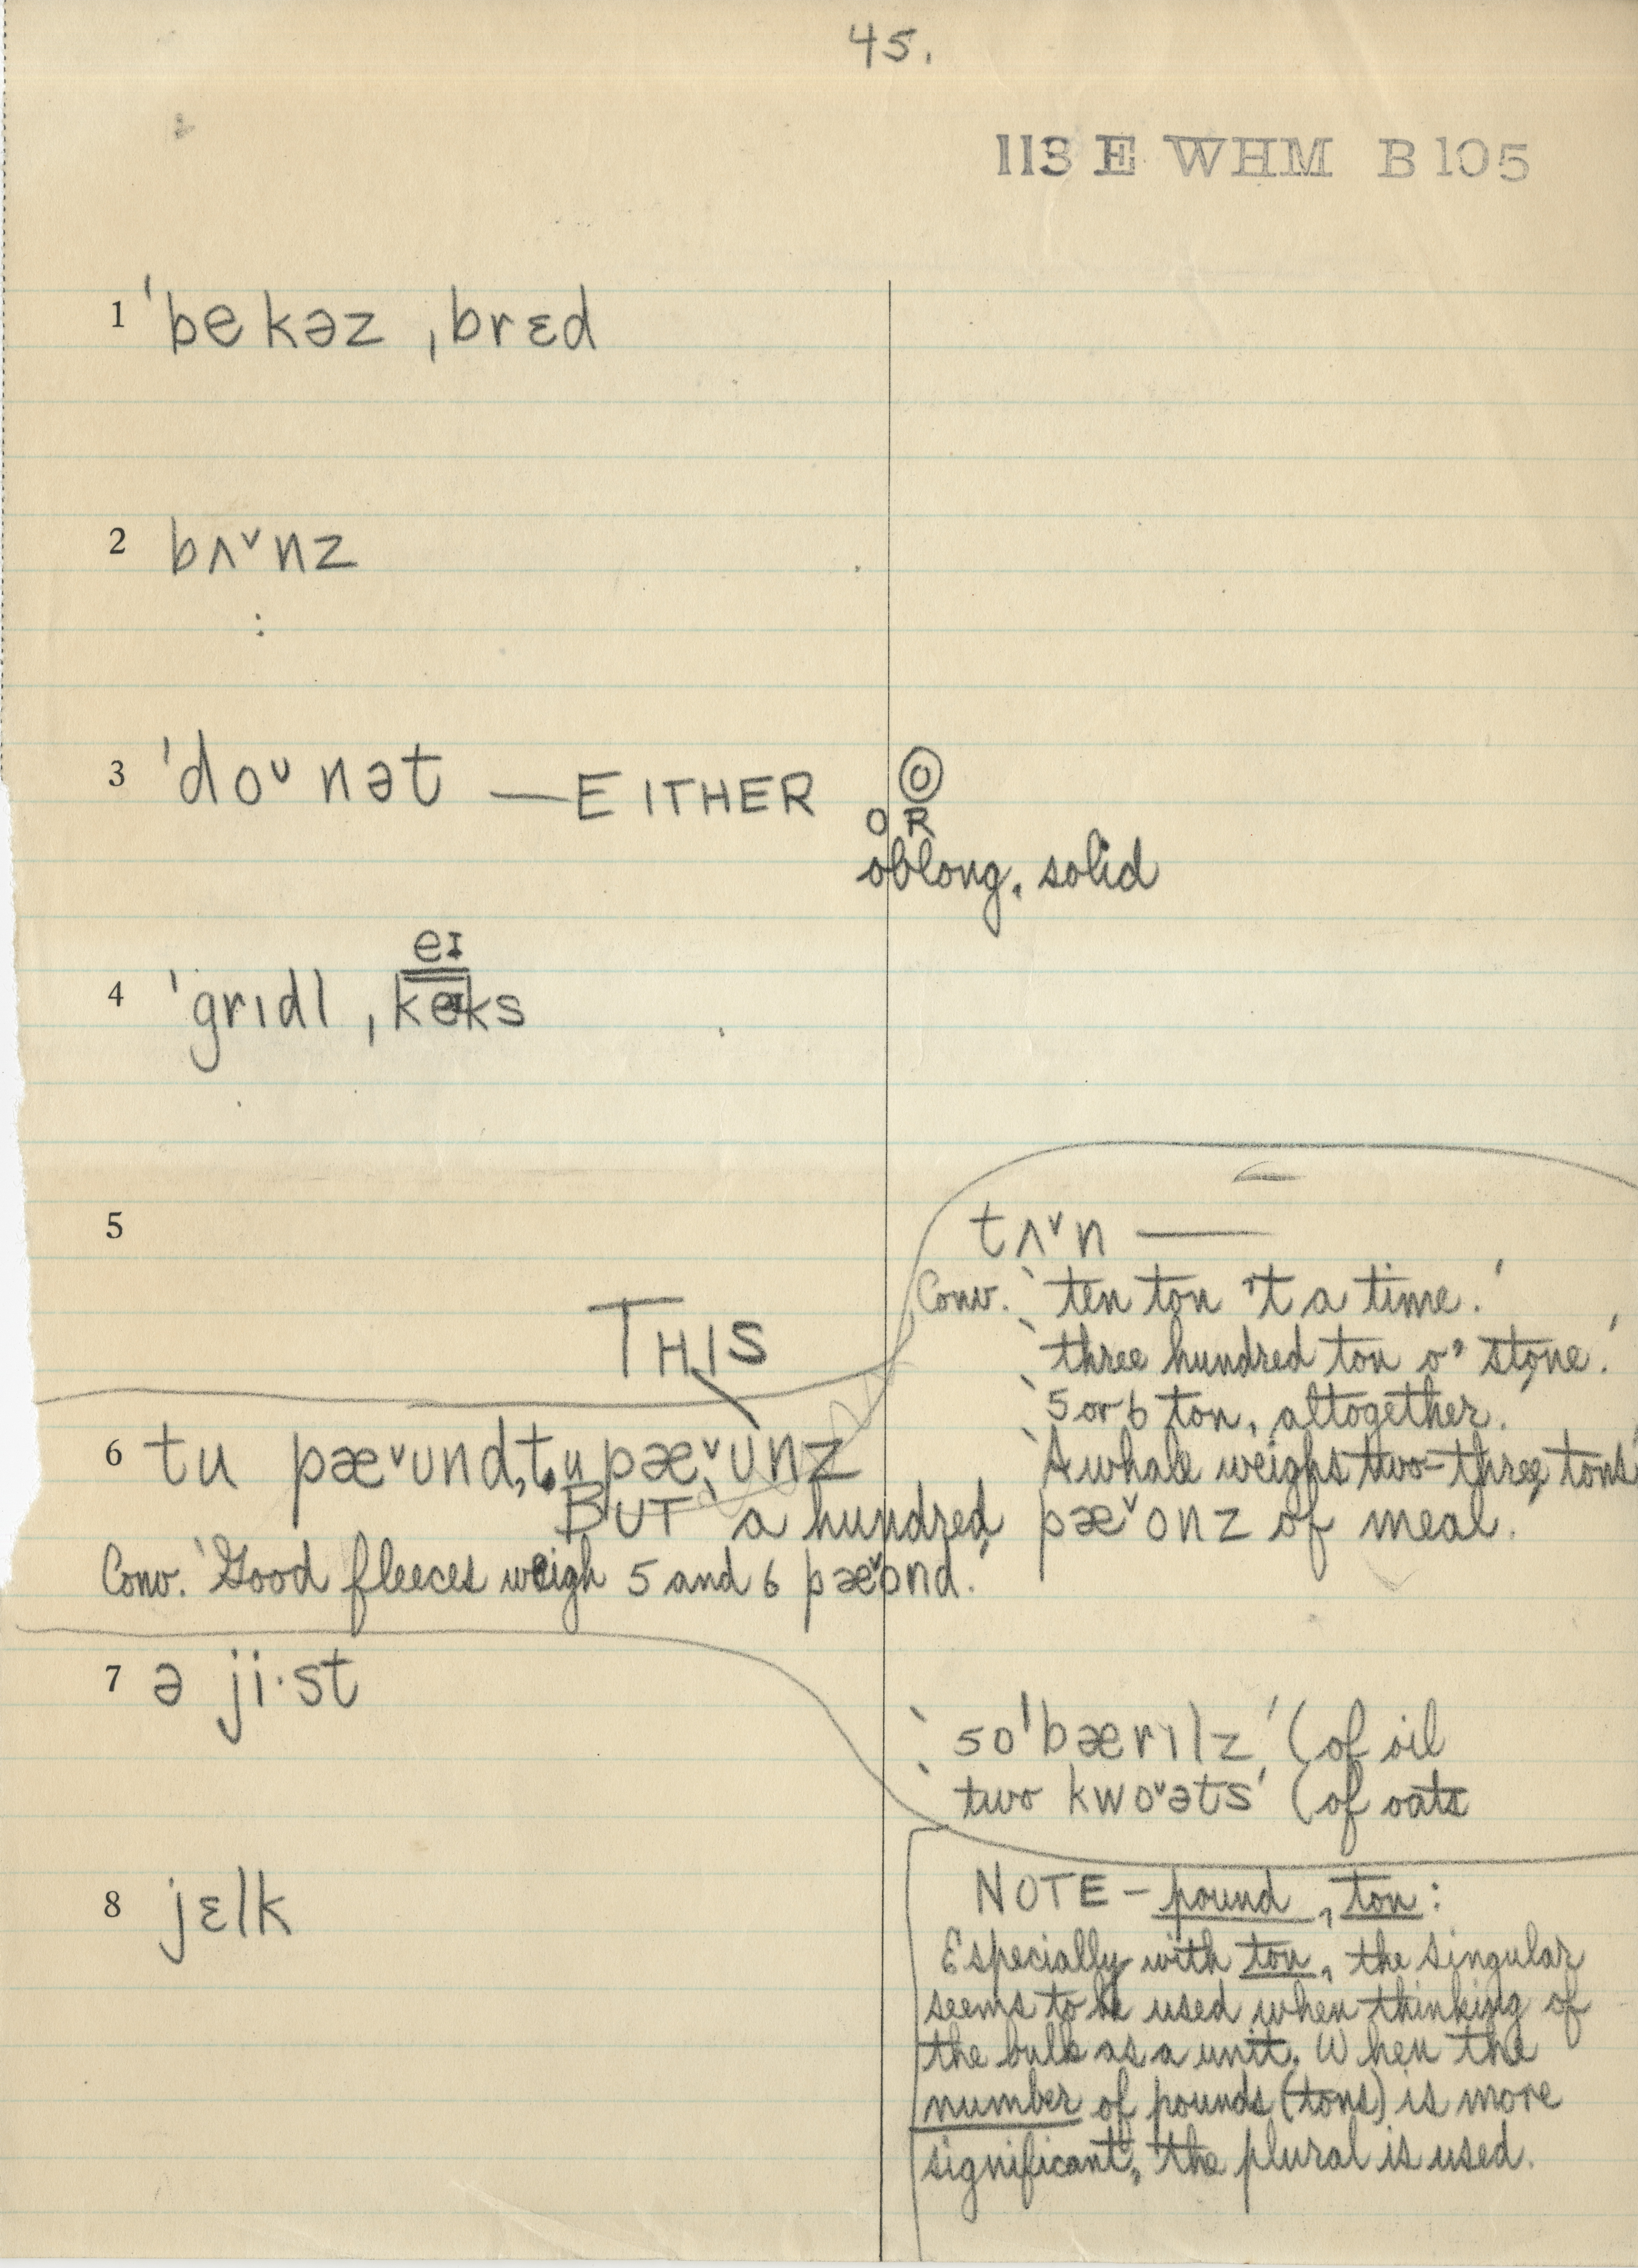 45.
113 E WHM B105
1 ˈbekəz ˌbrɛd
2 bʌ˅nz
3 ˈdoᴜnət — EITHER ⓞ
OR
oblong, solid
eɪ
4 ˈgrɪdl ˌkeɪks
5
tʌ˅n —
Conv. ‘ten ton 't a time.’
‘three hundred ton o' stone.’
‘5 or 6 ton, altogether.’
‘A whale weighs two-three tons’
THIS
6 tu pæ˅ʊnd, tu pæ˅ʊnz
BUT ‘a hundred pæ˅ʊnz of meal.’
Conv. ‘Good fleeces weigh 5 and 6 pæ˅ʊnd.’
7 ə ji·st
‘50 ˈbærɪlz’ (of oil
‘two kwo˅əts’ (of oats
8 jɛlk
NOTE – pound, ton:
Especially with ton, the singular
seems to be used when thinking of
the bulk as a unit. When the
number of pounds (tons) is more
significant, the plural is used.